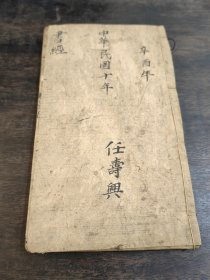 辛酉年
中華民國十年
任壽興
書經